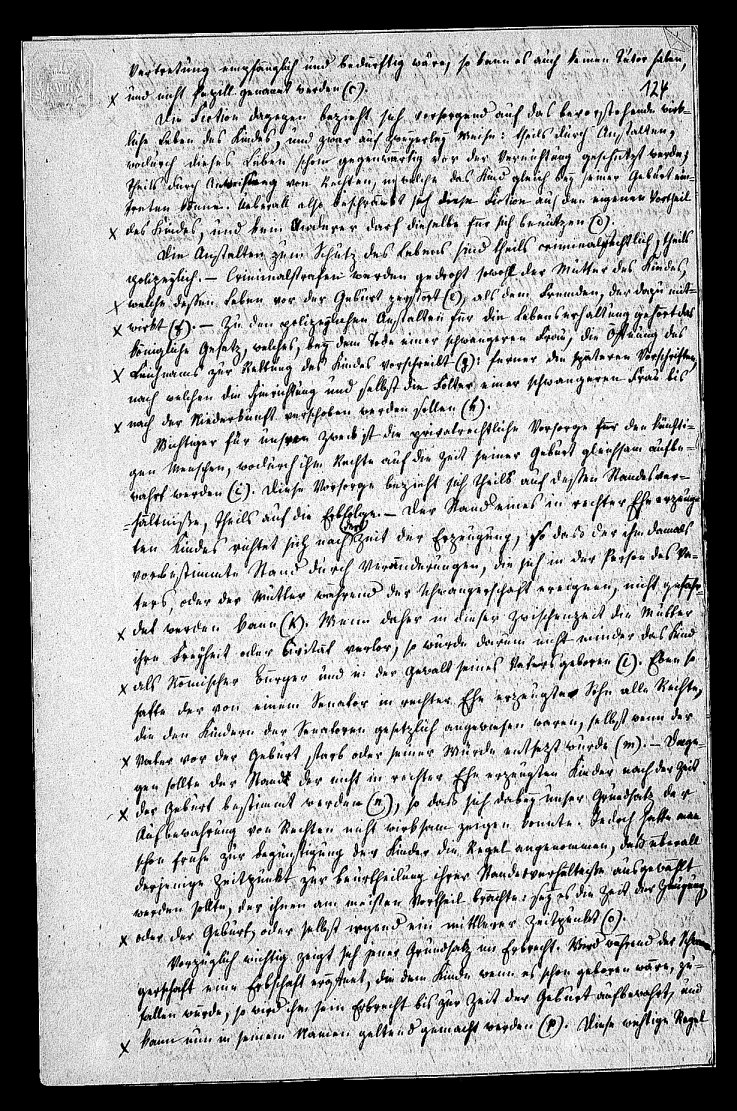 Vertretung empfänglich und bedürftig wäre, so kann es auch keinen Tutor haben,
124
x und nicht pupill genannt werden (c).
Die Fiction dagegen bezieht sich vorsorgend auf das bevorstehende wirk-
liche Leben des Kindes, und zwar auf zweyerley Weise: theils durch Anstalten,
wodurch dieses Leben schon gegenwärtig vor der Vernichtung geschützt werde;
theils durch Anweisung von Rechten, in welche das Kind gleich bey seiner Geburt ein-
treten könne. Ueberall also beschränkt sich diese Fiction auf den eigenen Vortheil
x des Kindes, und kein Anderer darf dieselbe für sich benutzen (d).
Die Anstalten zum Schutz des Lebens sind theils criminalrechtlich, theils
polizeylich. — Criminalstrafen werden gedroht sowohl der Mutter des Kindes,
x welche dessen Leben vor der Geburt zerstört (e), als dem Fremden, der dazu mit-
x wirkt (f). — Zu den polizeylichen Anstalten für die Lebenserhaltung gehört das
Königliche Gesetz, welches, bey dem Tode einer schwangeren Frau, die Öffnung des
x Leichnams zur Rettung des Kindes vorschreibt (g): ferner die späteren Vorschriften,
nach welchen die Hinrichtung und selbst die Folter einer schwangeren Frau bis
x nach der Niederkunft verschoben werden sollen (h).
Wichtiger für unsren Zweck ist die privatrechtliche Vorsorge für den künfti-
gen Menschen, wodurch ihm Rechte auf die Zeit seiner Geburt gleichsam aufbe-
wahrt werden (i). Diese Vorsorge bezieht sich theils auf dessen Standesver-
hältnisse, theils auf die Erbfolge. — Der Stand eines in rechter Ehe erzeug-
ten Kindes richtet sich nach der Zeit der Erzeugung, so daß der ihm damals
vorbestimmte Stand durch Veränderungen, die sich in der Person des Va-
ters, oder der Mutter während der Schwangerschaft ereignen, nicht gefähr-
x det werden kann (k). Wenn daher in dieser Zwischenzeit die Mutter
ihre Freyheit oder Civität verlor, so wurde darum nicht minder das Kind
x als Römischer Bürger und in der Gewalt seines Vaters geboren (l). Eben so
hatte der von einem Senator in rechter Ehe erzeugte Sohn alle Rechte,
die den Kindern der Senatoren gesetzlich angewiesen waren, selbst wenn der
x Vater vor der Geburt starb oder seiner Würde entsetzt wurde (m). — Dage-
gen sollte der Stand der nicht in rechter Ehe erzeugten Kinder nach der Zeit
x der Geburt bestimmt werden (n), so daß sich dabey unser Grundsatz der
Aufbewahrung von Rechten nicht wirksam zeigen konnte. Jedoch hatte man
schon frühe zur Begünstigung der Kinder die Regel angenommen, daß überall
derjenige Zeitpunkt zur Beurtheilung ihrer Standesverhältnisse ausgewählt
werden sollte, der ihnen am meisten Vortheil brächte: sey es die Zeit der Zeugung,
x oder der Geburt, oder selbst irgend ein mittlerer Zeitpunkt (o).
Vorzüglich wichtig zeigt sich jener Grundsatz im Erbrecht. Wird während der Schwan-
gerschaft eine Erbschaft eröffnet, die dem Kinde wenn es schon geboren wäre, zu-
fallen würde, so wird ihm sein Erbrecht bis zur Zeit der Geburt aufbewahrt, und
x kann nun in seinem Namen geltend gemacht werden (p). Diese wichtige Regel